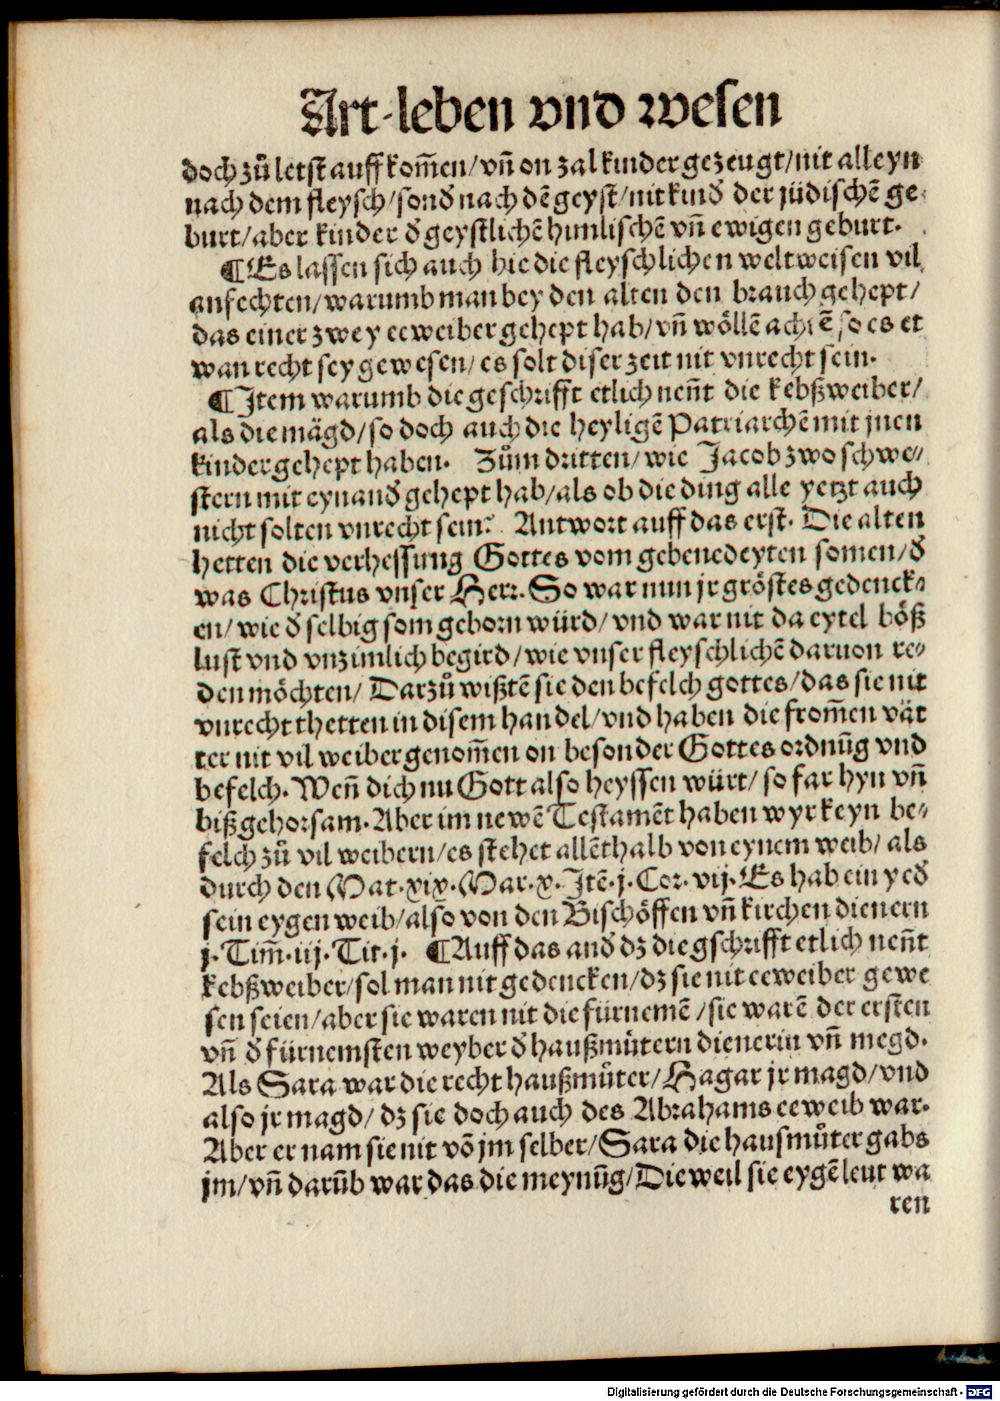 Art-leben vnd wesen
doch zů letst auff kom̃en/vñ on zal kinder gezeugt/nit alleyn
nach dem fleysch/sonđ nach dẽ geyst/nit kinđ der jüdischẽ ge-
burt/aber kinder đ geystlichẽ himlischẽ vñ ewigen geburt.
¶Es lassen sich auch hie die fleyschlichen weltweisen vil
anfechten/warumb man bey den alten den brauch gehept/
das einer zwey eeweiber gehept hab/vñ wöllẽ achtẽ so es et
wan recht sey gewesen/es solt diser zeit nit vnrecht sein.
¶Item warumb die geschrifft etlich neñt die kebßweiber/
als die mägd/so doch auch die heyligẽ Patriarchẽ mit jnen
kinder gehept haben. Zům dritten/wie Jacob zwo schwe-
stern mit eynanđ gehept hab/als ob die ding alle yetzt auch
nicht solten vnrecht sein? Antwort auff das erst. Die alten
hetten die verhessung Gottes vom gebenedeyten somen/đ
was Christus vnser Herr. So war nun jr gröstes gedenck-
en/wie đ selbig som geborn würd/vnd war nit da eytel böß
lust vnd vnzimlich begird/wie vnser fleyschlichẽ daruon re-
den möchten/ Darzů wißtẽ sie den befelch gottes/das sie nit
vnrecht thetten in disem handel/vnd haben die from̃en vät
ter nit vil weiber genom̃en on besonder Gottes ordnũg vnd
befelch. Weñ dich nu Gott also heyssen würt/so far hyn vñ
biß gehorsam. Aber im newẽ Testamẽt haben wyr keyn be-
felch zů vil weibern/es stehet allẽthalb von eynem weib/als
durch den Mat.xix.Mar.x.Itẽ.j.Cor.vij.Es hab ein yeđ
sein eygen weib/also von den Bischöffen vñ kirchen dienern
j.Tim̃.iij.Tit.j. ¶Auff das anđ dz die gschrifft etlich neñt
kebßweiber/sol man nit gedencken/dz sie nit eeweiber gewe
sen seien/aber sie waren nit die fürnemẽ/sie warẽ der ersten
vñ đ fürnemsten weyber đ haußmůtern dienerin vñ megd.
Als Sara war die recht haußmůter/Hagar jr magd/vnd
also jr magd/dz sie doch auch des Abrahams eeweib war.
Aber er nam sie nit võ jm selber/Sara die hausmůter gabs
jm/vñ darũb war das die meynũg/Die weil sie eygẽ leut wa
ren
Digitalisierung gefördert durch die Deutsche Forschungsgemeinschaft - DFG